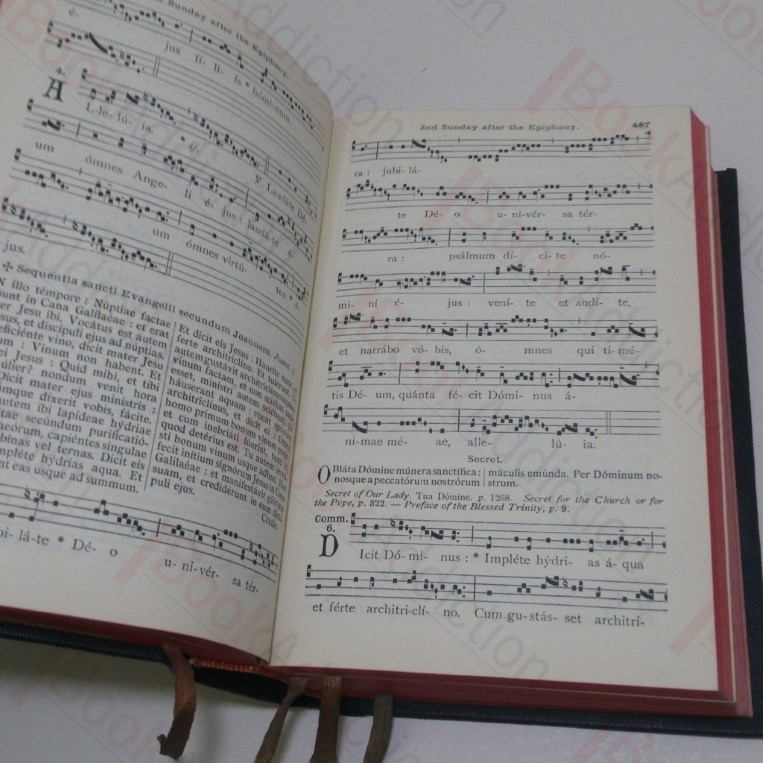 Sunday after the Epiphany.
é. jus fí- li- is * hóminum.
A L-le- lú- ia.
℣. Laudáte Dé-
um ómnes Ange- li é- jus : laudá-te é-
um ómnes virtú- tes * é-
jus.
✠ Sequentia sancti Evangelii secundum Joannem. Joann.
N illo témpore : Núptiæ factae
sunt in Cana Galilaéae : et erat
er Jesu ibi. Vocátus est autem
sus, et discípuli ejus ad núptias.
eficiénte vino, dicit mater Jesu
um : Vinum non habent. Et
ei Jesus : Quid mihi, et tibi
úlier? nondum venit hora
Dicit mater ejus minístris :
umque díxerit vobis, fácite.
utem ibi lapídeae hýdriae
tae secúndum purificatió-
aeórum, capiéntes síngulae
binas vel ternas. Dicit eis
mpléte hýdrias aqua. Et
nt eas usque ad summum.
Et dicit eis Jesus : Haurite nunc,
ferte architriclíno. Et tulérunt.
autem gustávit architriclínus
vinum factam, et non sciébat
esset, minístri autem sciébant
háuserant aquam : vocat
architriclínus, et dicit
homo primum bonum vinum
et cum inebriáti fúerint,
quod detérius est. Tu autem
sti bonum vinum usque adhuc.
fecit inítium signórum Jesus
Galilaéae : et manifestávit glóriam
suam, et credidérunt in eum
puli ejus.
Credo.
bi- lá-te * Dé- o u- ni-vér- sa tér-
2nd Sunday after the Epiphany. 487
ra : jubi-lá-
te Dé- o u- ni-vér- sa tér-
ra : psálmum dí- ci-te nó-
mi- ni é- jus : vení- te et audí- te,
et narrábo vó- bis, ó- mnes qui ti-mé-
tis Dé- um, quánta fé- cit Dómi- nus á-
ni-mae mé- ae, alle- lú- ia.
Secret.
OBláta Dómine múnera sanctífica : máculis emúnda. Per Dóminum no-
nosque a peccatórum nostrórum strum.
Secret of Our Lady. Tua Dómine. p. 1268. Secret for the Church or for
the Pope, p. 322. — Preface of the Blessed Trinity, p. 9.
Comm.
6.
D Icit Dó-mi- nus : * Impléte hýdri- as á- qua
et férte architri-clí- no. Cum gu-stás- set architri-
BookAddiction